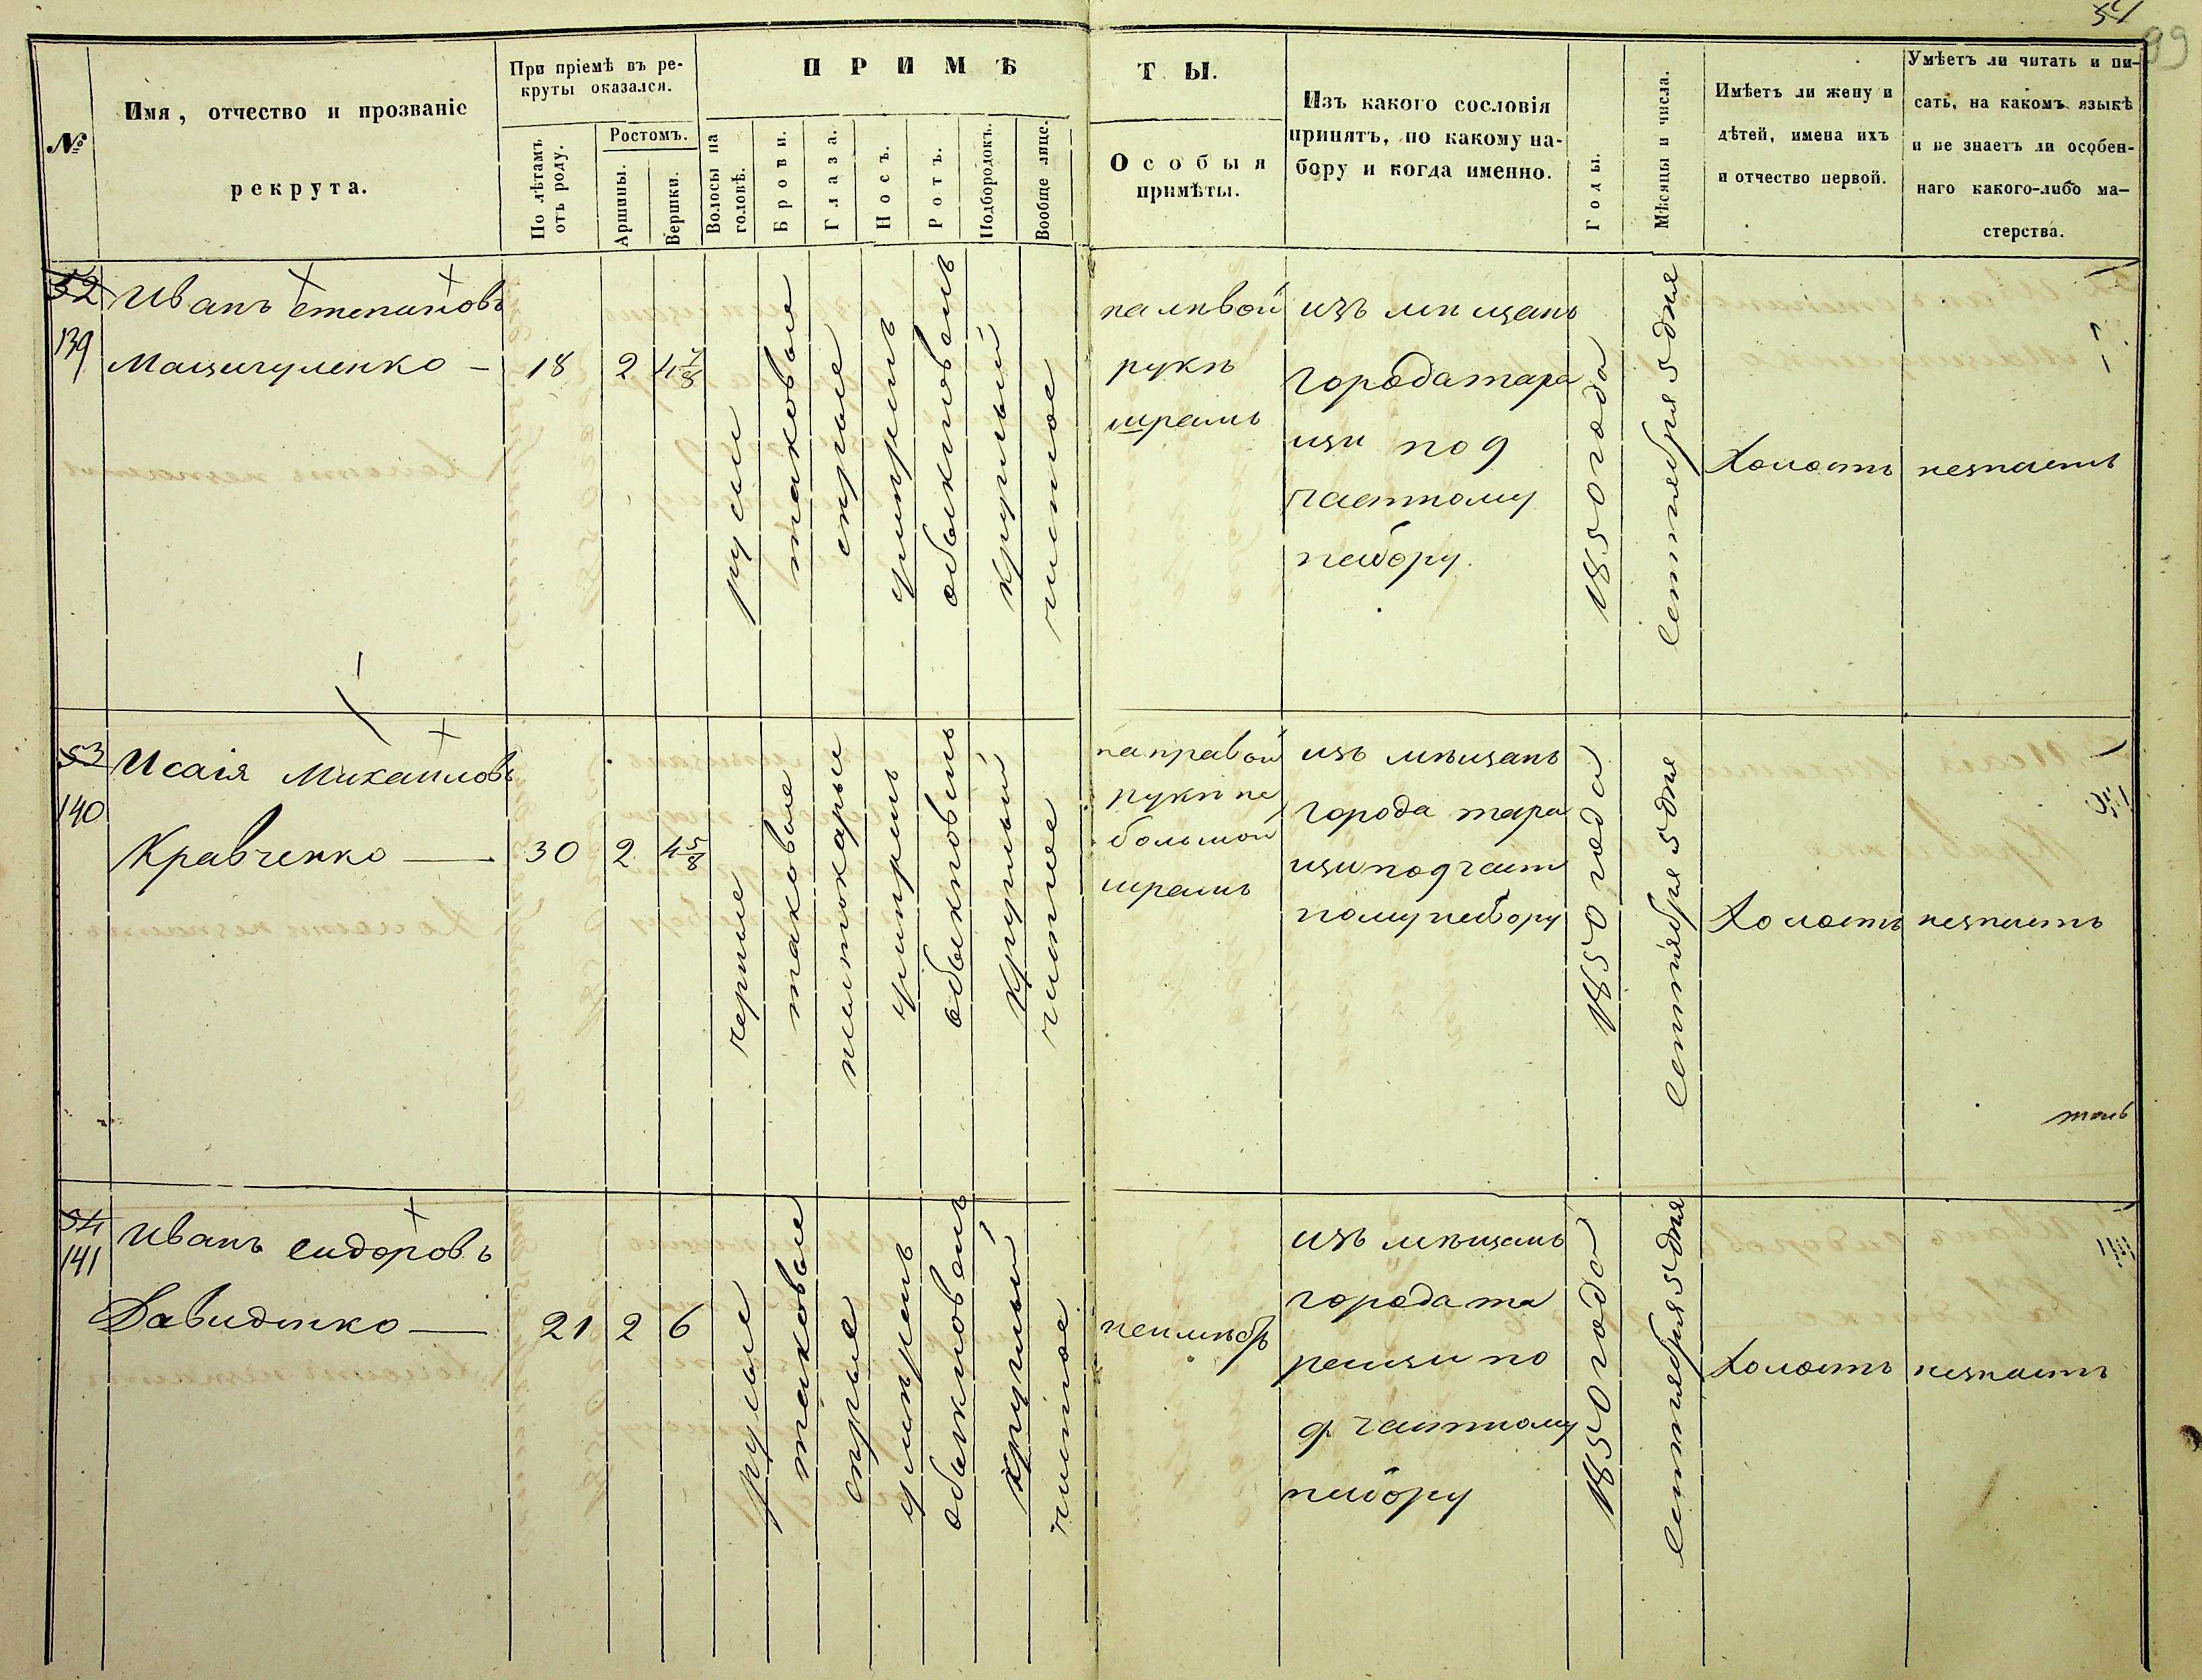 54
99
№
Имя, отчество и прозваніе
рекрута.
При пріемѣ въ ре-
круты оказался.
По лѣтамъ
отъ роду.
Ростомъ.
Аршины.
Вершки.
ПРИМѢ
Волосы на
головѣ.
Брови.
Глаза.
Носъ.
Ротъ.
Подбородокъ.
Вообще лице.
ТЫ.
Особыя
примѣты.
Изъ какого сословія
принятъ, по какому на-
бору и когда именно.
Годы.
Мѣсяцы и числа.
Имѣетъ ли жену и
дѣтей, имена ихъ
и отчество первой.
Умѣетъ ли читать и пи-
сать, на какомъ языкѣ
и не знаетъ ли особен-
наго какого-либо ма-
стерства.
52
139
Иванъ степановъ
18
2
4 7/8
русыи
таковые
серые
умѣренъ
обыкновенъ
круглый
чистое
на лѣвой
рукѣ
шрамъ
изъ мѣщанъ
города тара
щи под
частному
набору.
1850 года
сентября 5 дня
Холостъ
незнаетъ
53
140
Исаія Михаиловъ
Кравченко —
30
2
4 5/8
черные
таковые
умѣренъ
обыкновенъ
круглый
чистое
на правой
рукѣ не
большой
шрамъ
изъ мѣщанъ
города тара
щи под част
ному набору
1850 года
сентября 5 дня
Холостъ
незнаетъ
54
141
Иванъ сидоровъ
Давиденко —
21
2
6
русые
таковые
серые
умѣренъ
обыкновенъ
круглый
чистое
неимѣет
изъ мѣщанъ
города та
ращи по
д частному
набору
1850 года
сентября 5 дня
Холостъ
незнаетъ